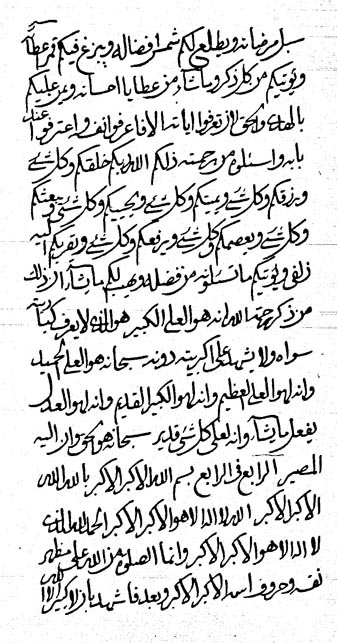 سبل مرضاته ويطلع لكم شمس افضاله ويبزغ فيكم قمر عطائه
ويؤتيكم من كل ذكر وما يشاء من عطايا احسانه ويمن عليكم
بالهدى والحق ان تعرفوا اياته الا فاعرفوا نفسه واعترفوا عنده
بابه واسئلوه من رحمته ذلكم الله ربكم خلقكم وكل شئ
ورزقكم وكل شئ ويميتكم وكل شئ ويحييكم وكل شئ ويبعثكم
وكل شئ ويعصمكم وكل شئ ويرفعكم وكل شئ ويقربكم اليه
زلفى ويؤتيكم ما تسئلونه من فضله ويهب لكم ما يشاء ان ذلك
من ذكر رحمة الله انه هو العلي الكبير هو الذي لا يعرف كبريائه
سواه ولا يشهد على اكبريته دونه سبحانه هو العلي الحميد
وانه لهو العلي العظيم وانه لهو الكبير القديم وانه لهو العدل
يفعل ما يشاء وانه لعلى كل شئ قدير سبحانه هو الحق وان اليه
المصير الرابع في الرابع بسم الله الاكبر الاكبر بالله الله
الاكبر الاكبر الله لا اله الا هو الاكبر الاكبر الحمد لله الذي
لا اله الا هو الاكبر الاكبر وانما الصلوة من الله على مظهر
نفسه وحروف اسمه الاكبر الاكبر وبعد فاشهد بان لا كبير الا الله